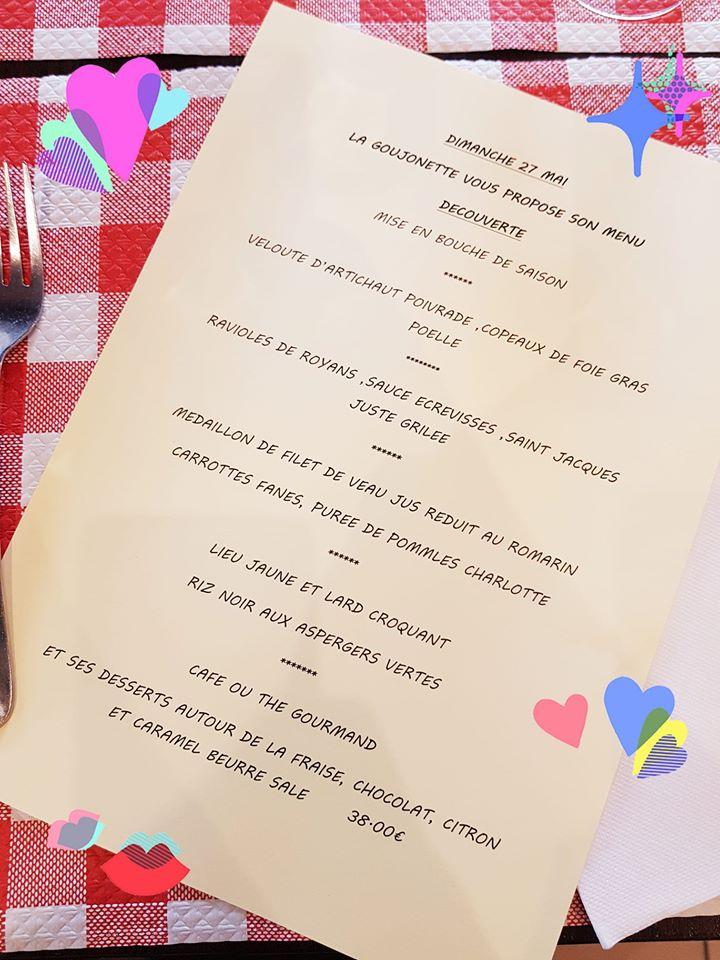 DIMANCHE 27 MAI
LA GOUJONETTE VOUS PROPOSE SON MENU
DECOUVERTE
MISE EN BOUCHE DE SAISON
******
VELOUTE D'ARTICHAUT POIVRADE ,COPEAUX DE FOIE GRAS
POELLE
********
RAVIOLES DE ROYANS ,SAUCE ECREVISSES ,SAINT JACQUES
JUSTE GRILEE
******
MEDAILLON DE FILET DE VEAU JUS REDUIT AU ROMARIN
CARROTTES FANES, PUREE DE POMMLES CHARLOTTE
******
LIEU JAUNE ET LARD CROQUANT
RIZ NOIR AUX ASPERGERS VERTES
*******
CAFE OU THE GOURMAND
ET SES DESSERTS AUTOUR DE LA FRAISE, CHOCOLAT, CITRON
ET CARAMEL BEURRE SALE
38.00€